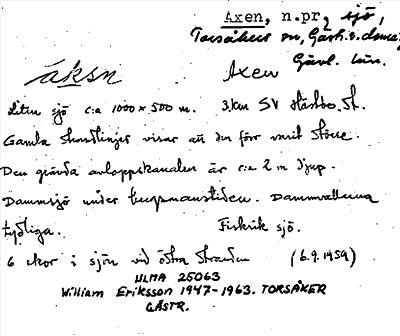 Axen, n.pr, sjö,
Torsåkers sn, Gästr.
Gävl. län.
äksn Axen
Liten sjö c:a 1000 x 500 m. 3 km SV Hästbo.
Gamla strandlinjer visar att den förr varit större.
Den grävda avloppskanalen är c:a 2 m djup.
Dammsjö under bergsmanstiden. Dammvallarna
tydliga. Fiskrik sjö.
6 ekor i sjön vid östra stranden (6.9.1959)
ULMA 25063
William Eriksson 1947-1963. TORSÅKER
GÄSTR.